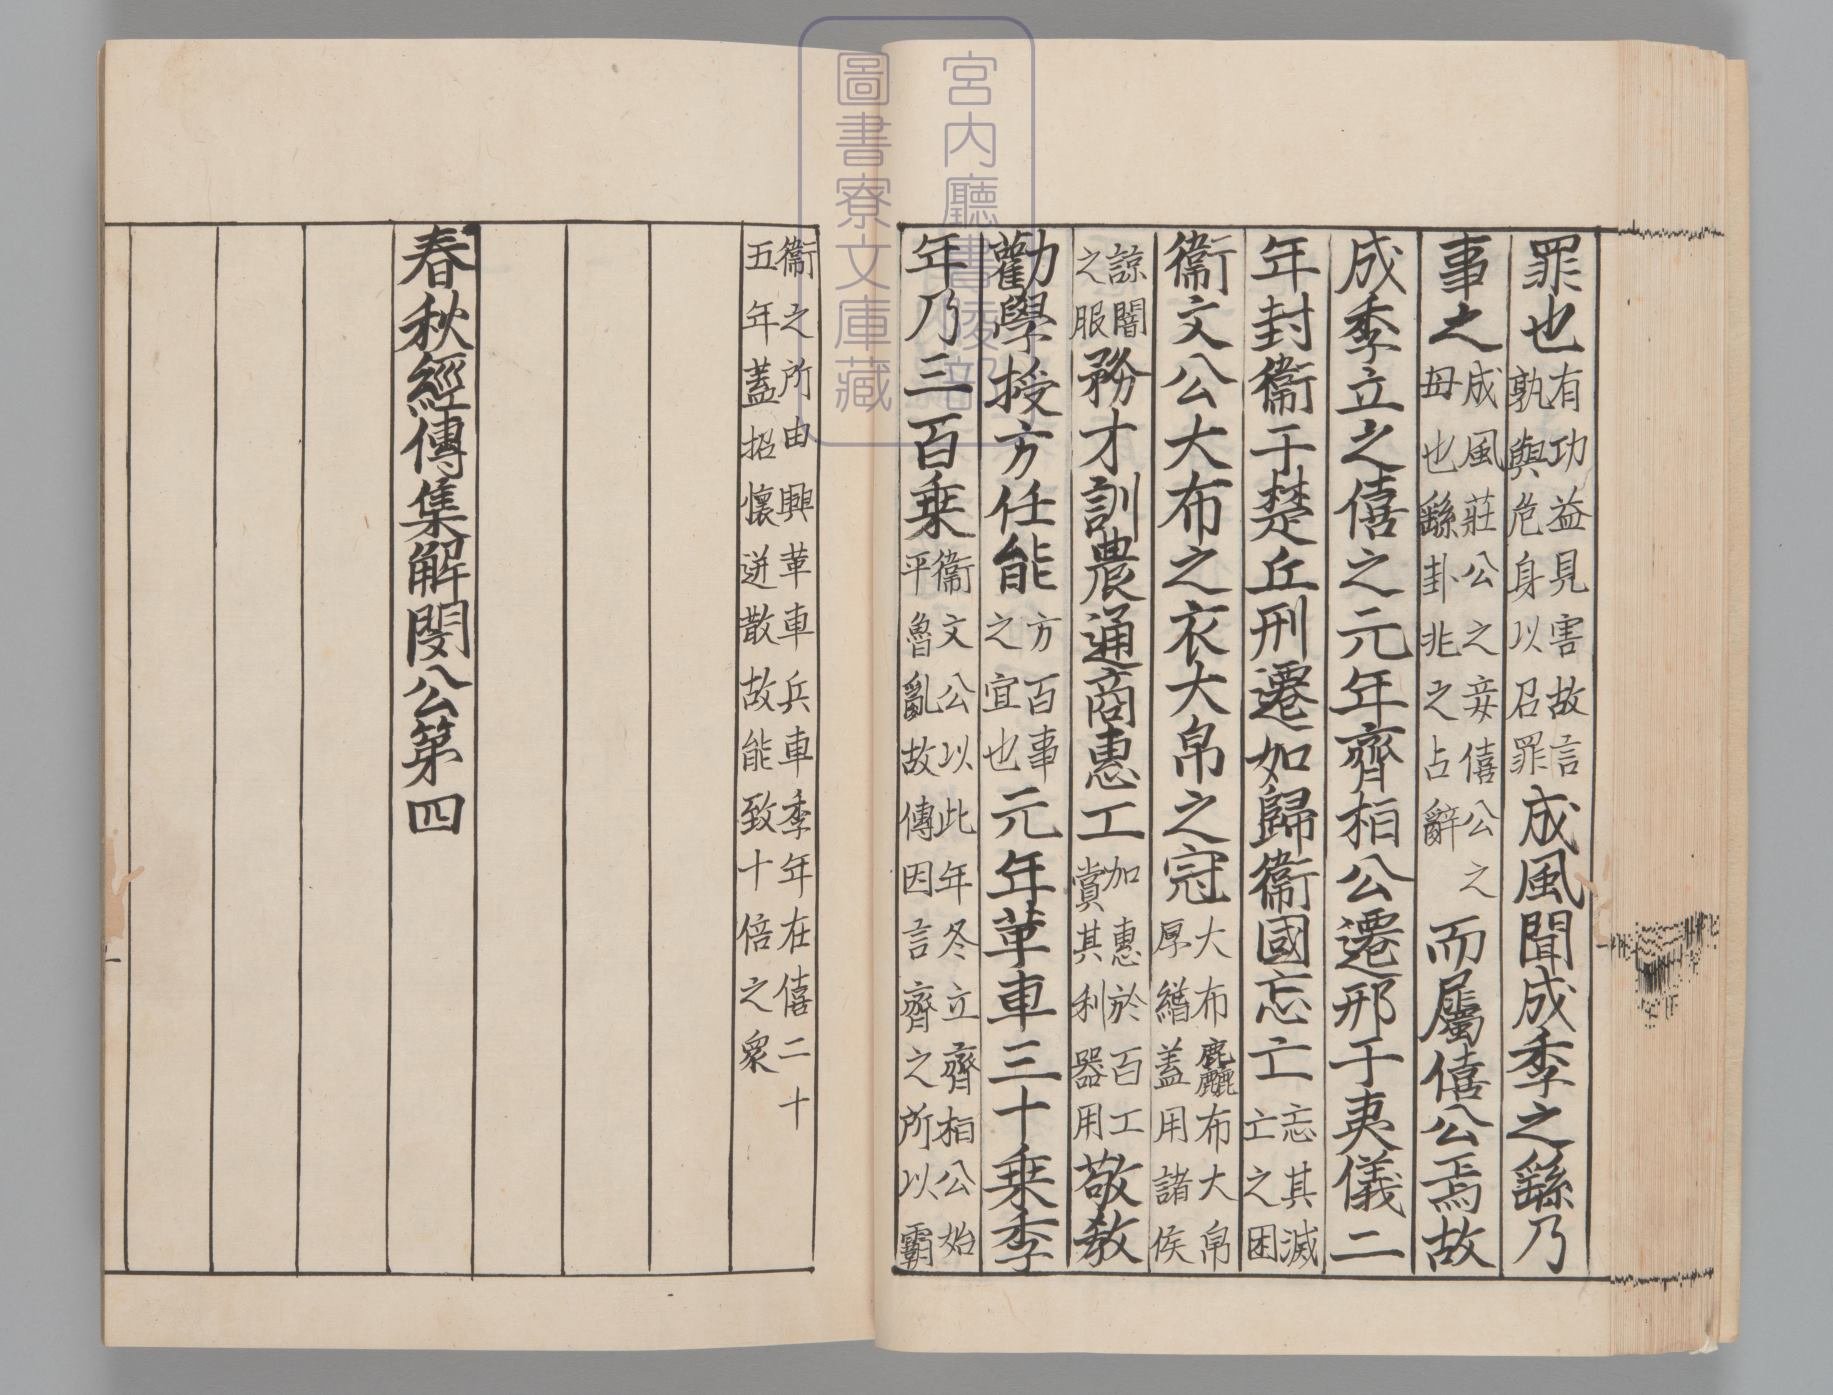 罪也有功益見害故言孰與危身以召罪成風聞成季之繇乃
事之成風莊公之妾僖公之母也繇卦兆之占辭而屬僖公焉故
成季立之僖之元年齊桓公遷邢于夷儀二
年封衞于楚丘刑遷如歸衞國忘亡忘其滅亡之困
衞文公大布之衣大帛之冠大布麤布大帛厚繒蓋用諸侯
諒闇之服務才訓農通商惠工加惠於百工賞其利器用敬敎
勸學授方任能方百事之宜也元年革車三十乗季
年乃三百乗衞文公以此年冬立齊桓公始平魯亂故傳因言齊之所以霸
衞之所由興革車兵車季年在僖二十五年蓋招懷迸散故能致十倍之衆
春秋經傳集解閔公第四
宮内廳書陵部
圖書寮文庫藏